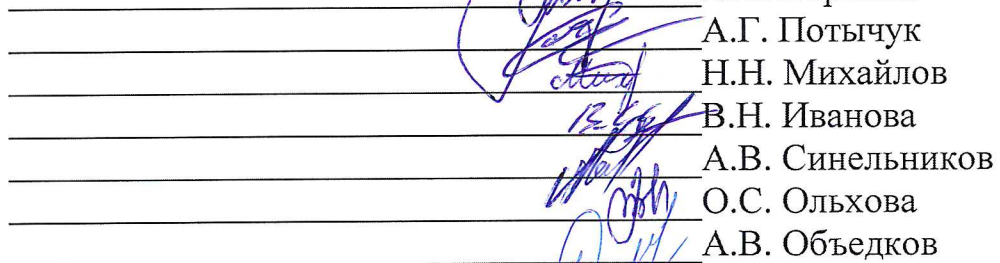 А.Г. Потычук
Н.Н. Михайлов
В.Н. Иванова
А.В. Синельников
О.С. Ольхова
А.В. Объедков